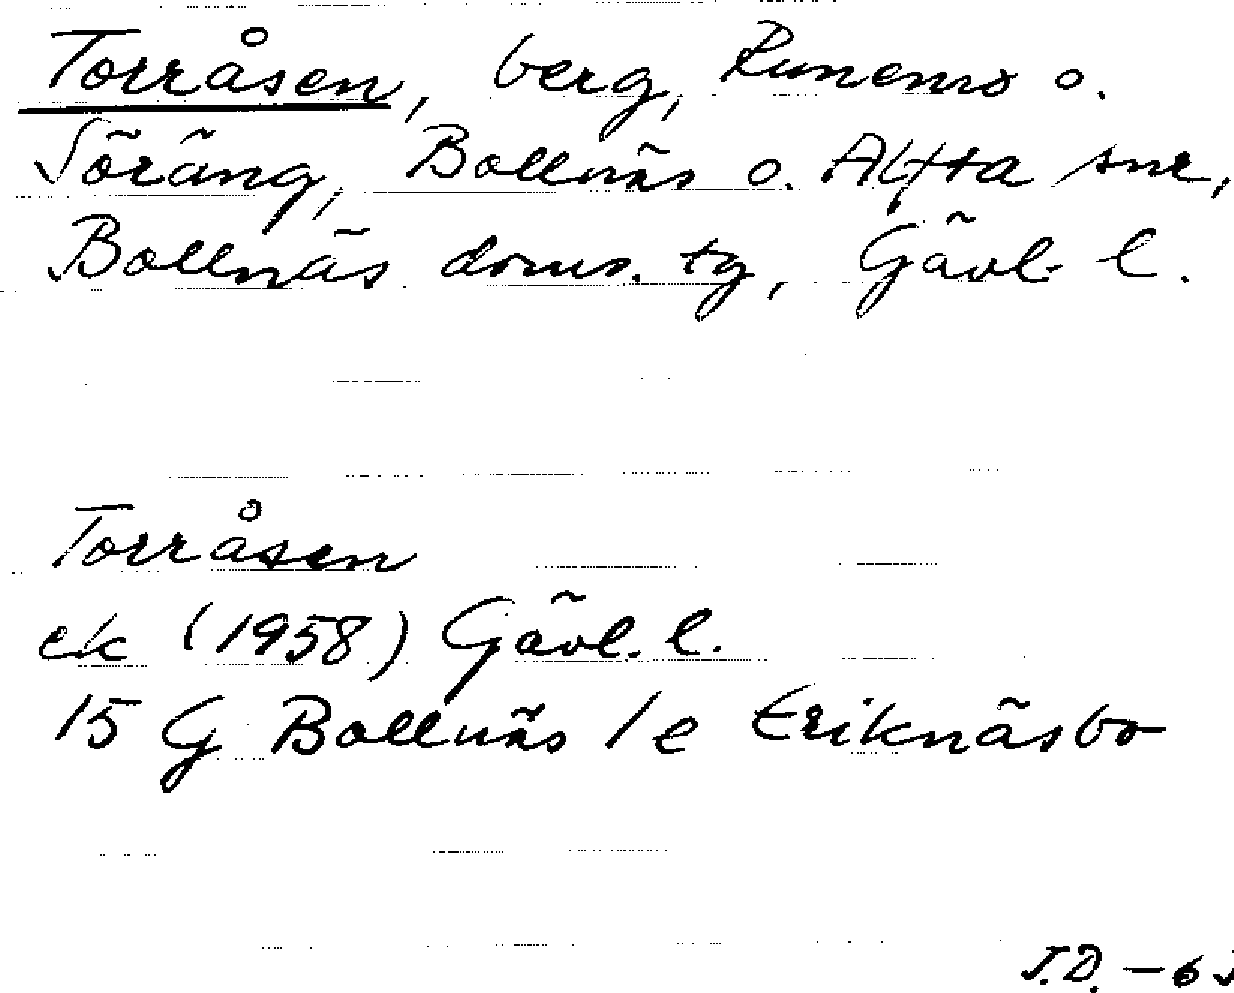 Torråsen, berg, Runemo o.
Söräng, Bollnäs o. Alfta snr,
Bollnäs doms. tg, Gävl. l.
Torråsen
ek (1958) Gävl. l.
15 G Bollnäs 1 e Eriknäsbo
J.D. -